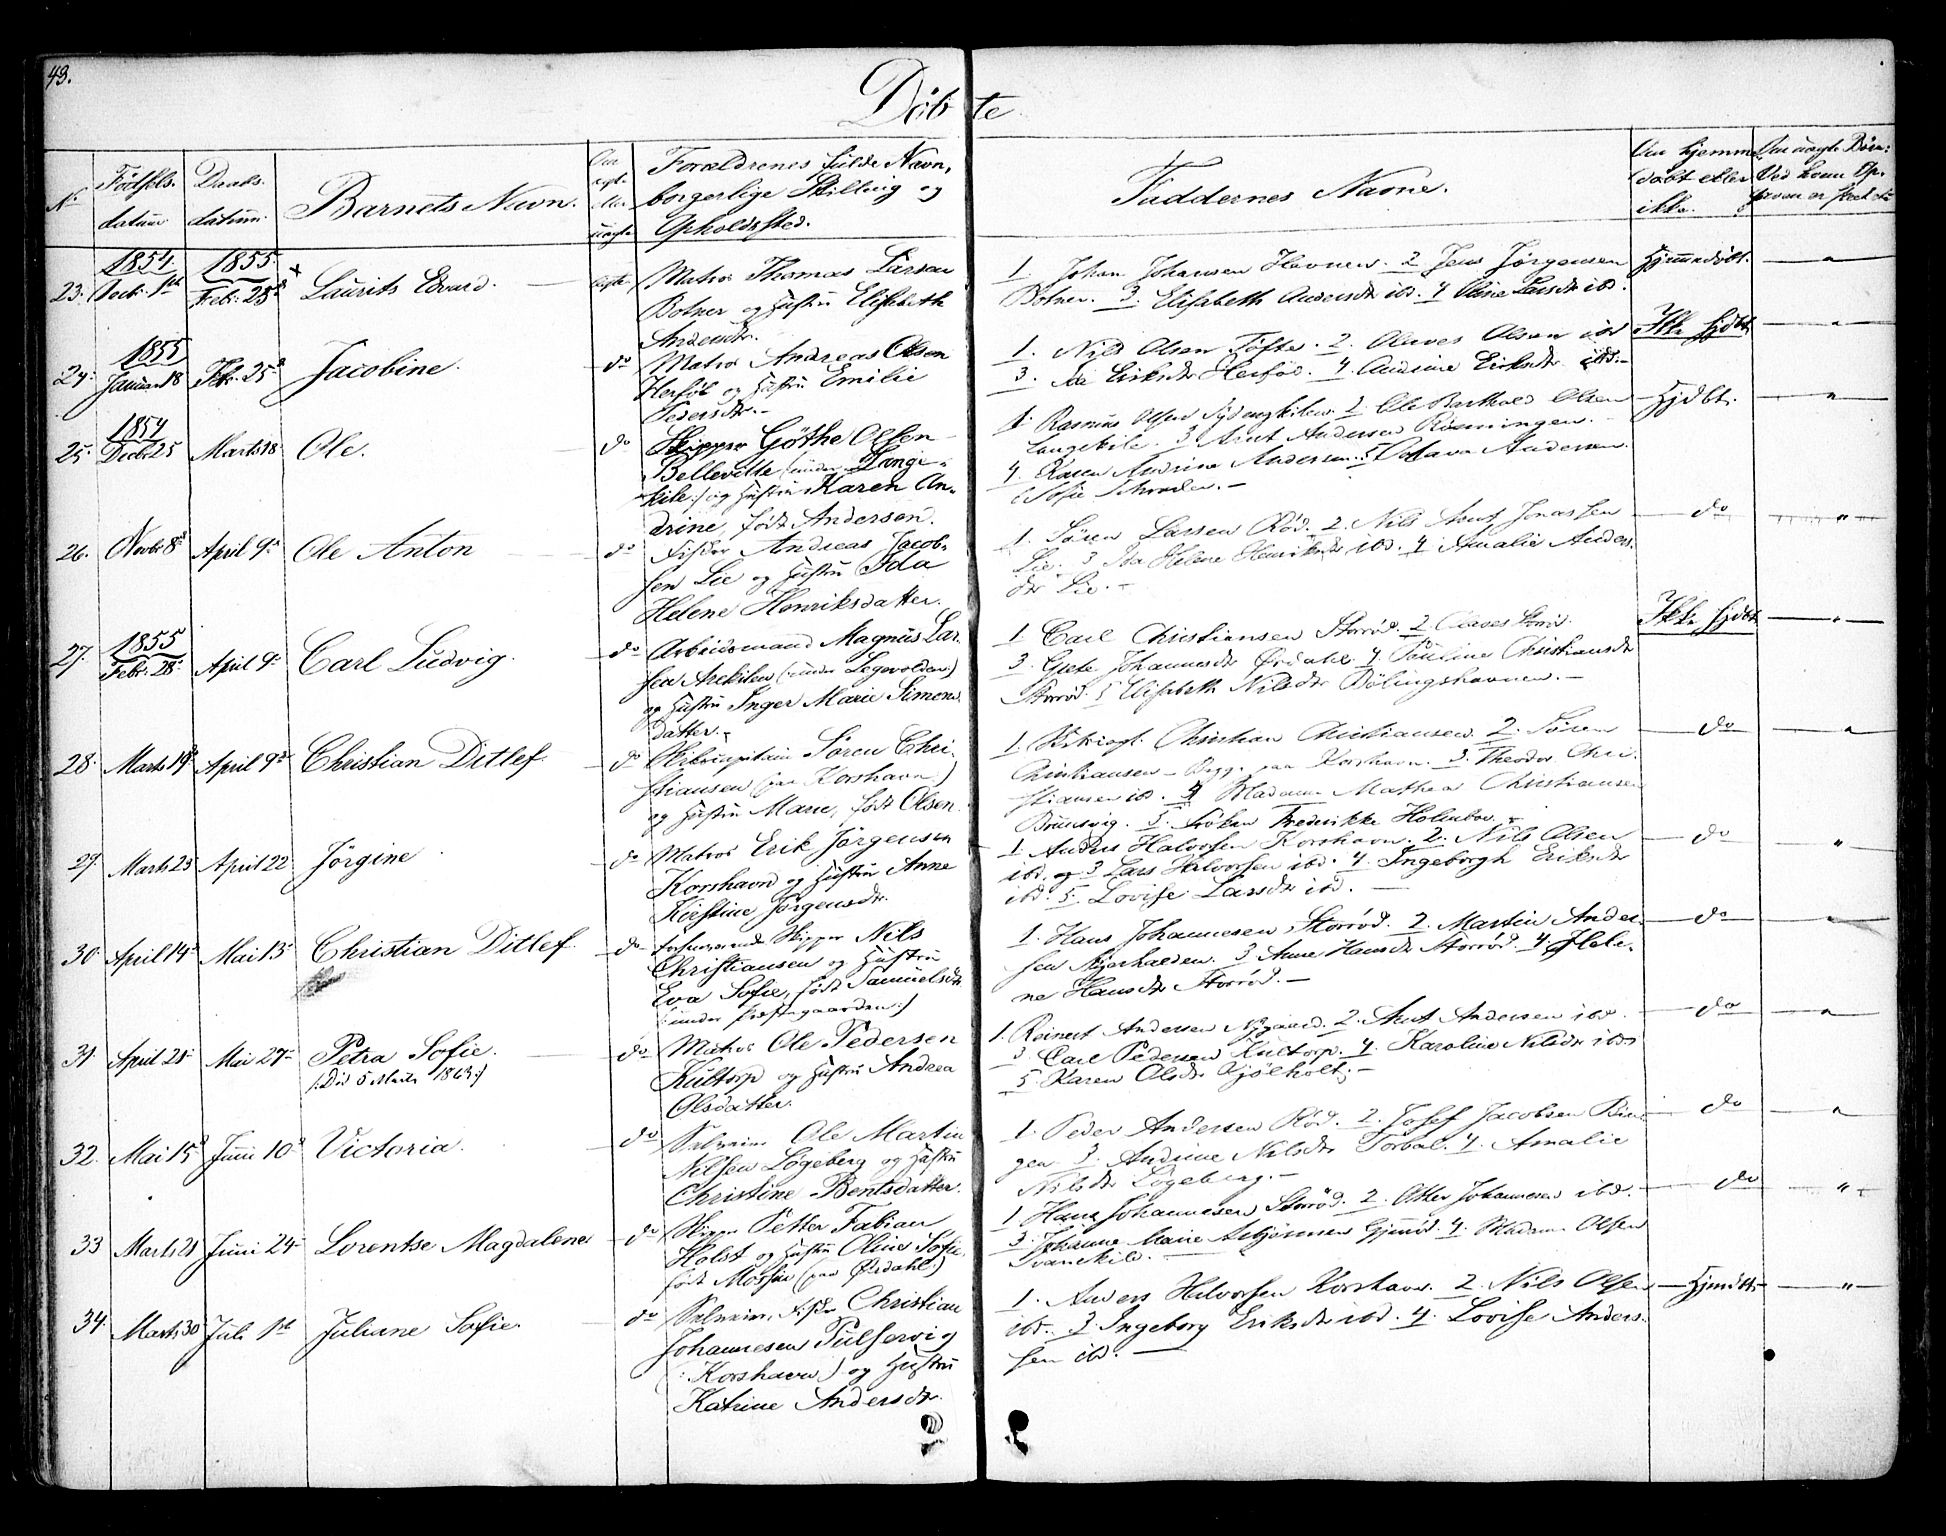 43.
Döbte
No
Födsels-
datum
Daabs-
datum
Barnets Navn.
Om
ægte
eller
uægte
Forældrenes fulde Navn,
borgerlige Stilling og
Opholdssted.
Faddernes Navne.
Om hjemme
døbt eller
ikke.
Om uægte Børn:
23.
1854.
1ste
1855
Febr. 25d
×
Laurits Edvard.
Matros Thomas Larsen
Botner og Hustru Elisabeth
Andersdtr.
1. Johan Johansen Havnen. 2 Jens Jørgensen
Botner. 3. Elisabeth Andersdtr ibd. 4 Oline Larsdtr ibd.
Hjemmedöbt.
"
24.
1855
Januar 18
Febr. 25d
Jacobine.
do
Matros Andreas Olsen
Herföl og Hustru Emilie
Pedersdtr.
1. Nils Olsen Tofte. 2. Olaves Olsen ibd
3. Eriksdtr Herföl. 4. Andrine Eriksdtr ibd.
Ikke hjdbt
"
25.
1854
Decbr 25
Marts 18
Ole.
do
Skipper Göthe Olsen
Bellevette (: under Lange-
kile :) og Hustru Karen An-
drine, født Andersen.
1. Rasmus Olsen 2. Ole Barthold Olsen
Langekile. 3. Arnt Andersen Rönningen.
4. Karen Andrine Andersen. 5 Octava Andersen
Hjdbt.
"
26.
Novbr 8d
April 9d
Ole Anton
do
Fisker Andreas Jacob-
sen Lie og Hustru Ida
Helene Henriksdatter.
1. Sören Larsen Röd. 2. Nils Arnt Jonassen
Lie. 3 Ida Helene Henriksdtr ibd. 4 Amalie Anders-
dtr Lie.
do
"
27.
1855
Febr. 28
April 9d
Carl Ludvig.
do
Arbeidsmand Magnus Lar-
sen Arekilen (: under Løgevolden :)
og Hustru Inger Marie Simons-
datter.
1. Carl Christiansen Storröd. 2 Olaves Storröd.
3. Grete Johannesdtr Ørdahl. 4. Pauline Christiansdtr
Storröd. 5 Elisabeth Nilsdtr Bölingshavnen.
Ikke hjdbt
"
28.
Marts 19d
April 9d
Christian Ditlef
do
Skibscapitain Sören Chri-
stiansen (paa Korshavn)
og Hustru Marie, født Olsen.
1. Christian Christiansen. 2. Sören
Christiansen - paa Korshavn. 3. Theodor Chri-
stiansen ibd. 4 Madame Mathea Christiansen
Brunsvig. 5. Fröken Frederikke Holmboe.
do
"
29.
Marts 23
April 22
Jörgine
do
Matros Erik Jörgensen
Korshavn og Hustru Anne
Kirstine Jörgensdtr.
1 Anders Halvorsen Korshavn. 2. Nils Olsen
ibd. og 3 Lars Halvorsen ibd. 4. Ingeborgh Eriksdtr
ibd. 5. Lovise Larsdtr ibd.
do
"
30.
April 14d
Mai 13d
Christian Ditlef.
do
forhenværende Skipper Nils
Christiansen og Hustru
Eva Sofie, født Samuelsdtr
(: under Præstegaarden :)
1. Hans Johannesen Storröd. 2. Martin Ander-
sen 3 Anne Hansdtr Storröd. 4. Hele-
ne Hansdtr Storröd.
do
"
31.
April 21
Mai 27
Petra Sofie.
(: Död 5 Marts 1863 :)
do
Matros Ole Pedersen
Kultorp og Hustru Andrea
Olsdatter.
1. Reinert Andersen Nygaard. 2. Arnt Andersen ibd.
3. Carl Pedersen Kultorp. 4. Karoline Nilsdtr ibd
5. Karen Olsdtr Kjölholt.
do
"
32.
Mai 15d
Juni 10d
Victoria.
do
Selveier Ole Martin
Nilsen Løgeberg og Hustru
Christine Bentsdatter.
1. Peder Andersen Röd. 2. Josef Jacobsen
3. Andrine Nilsdtr Torbal. 4. Amalie
Nilsdtr Løgeberg.
do
"
33
Marts 21
Juni 24
Lorentse Magdalene
do
Skipper Petter Fabian
Holst og Hustru Oline Sofie
født Mossin (paa Ørdahl :)
1 Hans Johannesen Storröd. 2. Johannesen ibd.
3. Johanne Marie 4. Madam Olsen
Svanekil.
do
"
34
Marts 30
Juli 1ste
Juliane Sofie.
do
Selveier, Fisker Christian
Johannesen Pulservig
(: Korshavn) og Hustru
Katrine Andersdtr.
1. Anders Halvorsen Korshavn. 2. Nils Olsen
ibd. 3. Ingeborg Eriksdtr ibd. 4. Lovise Anders-
sen ibd.
Hjmdbt.
"